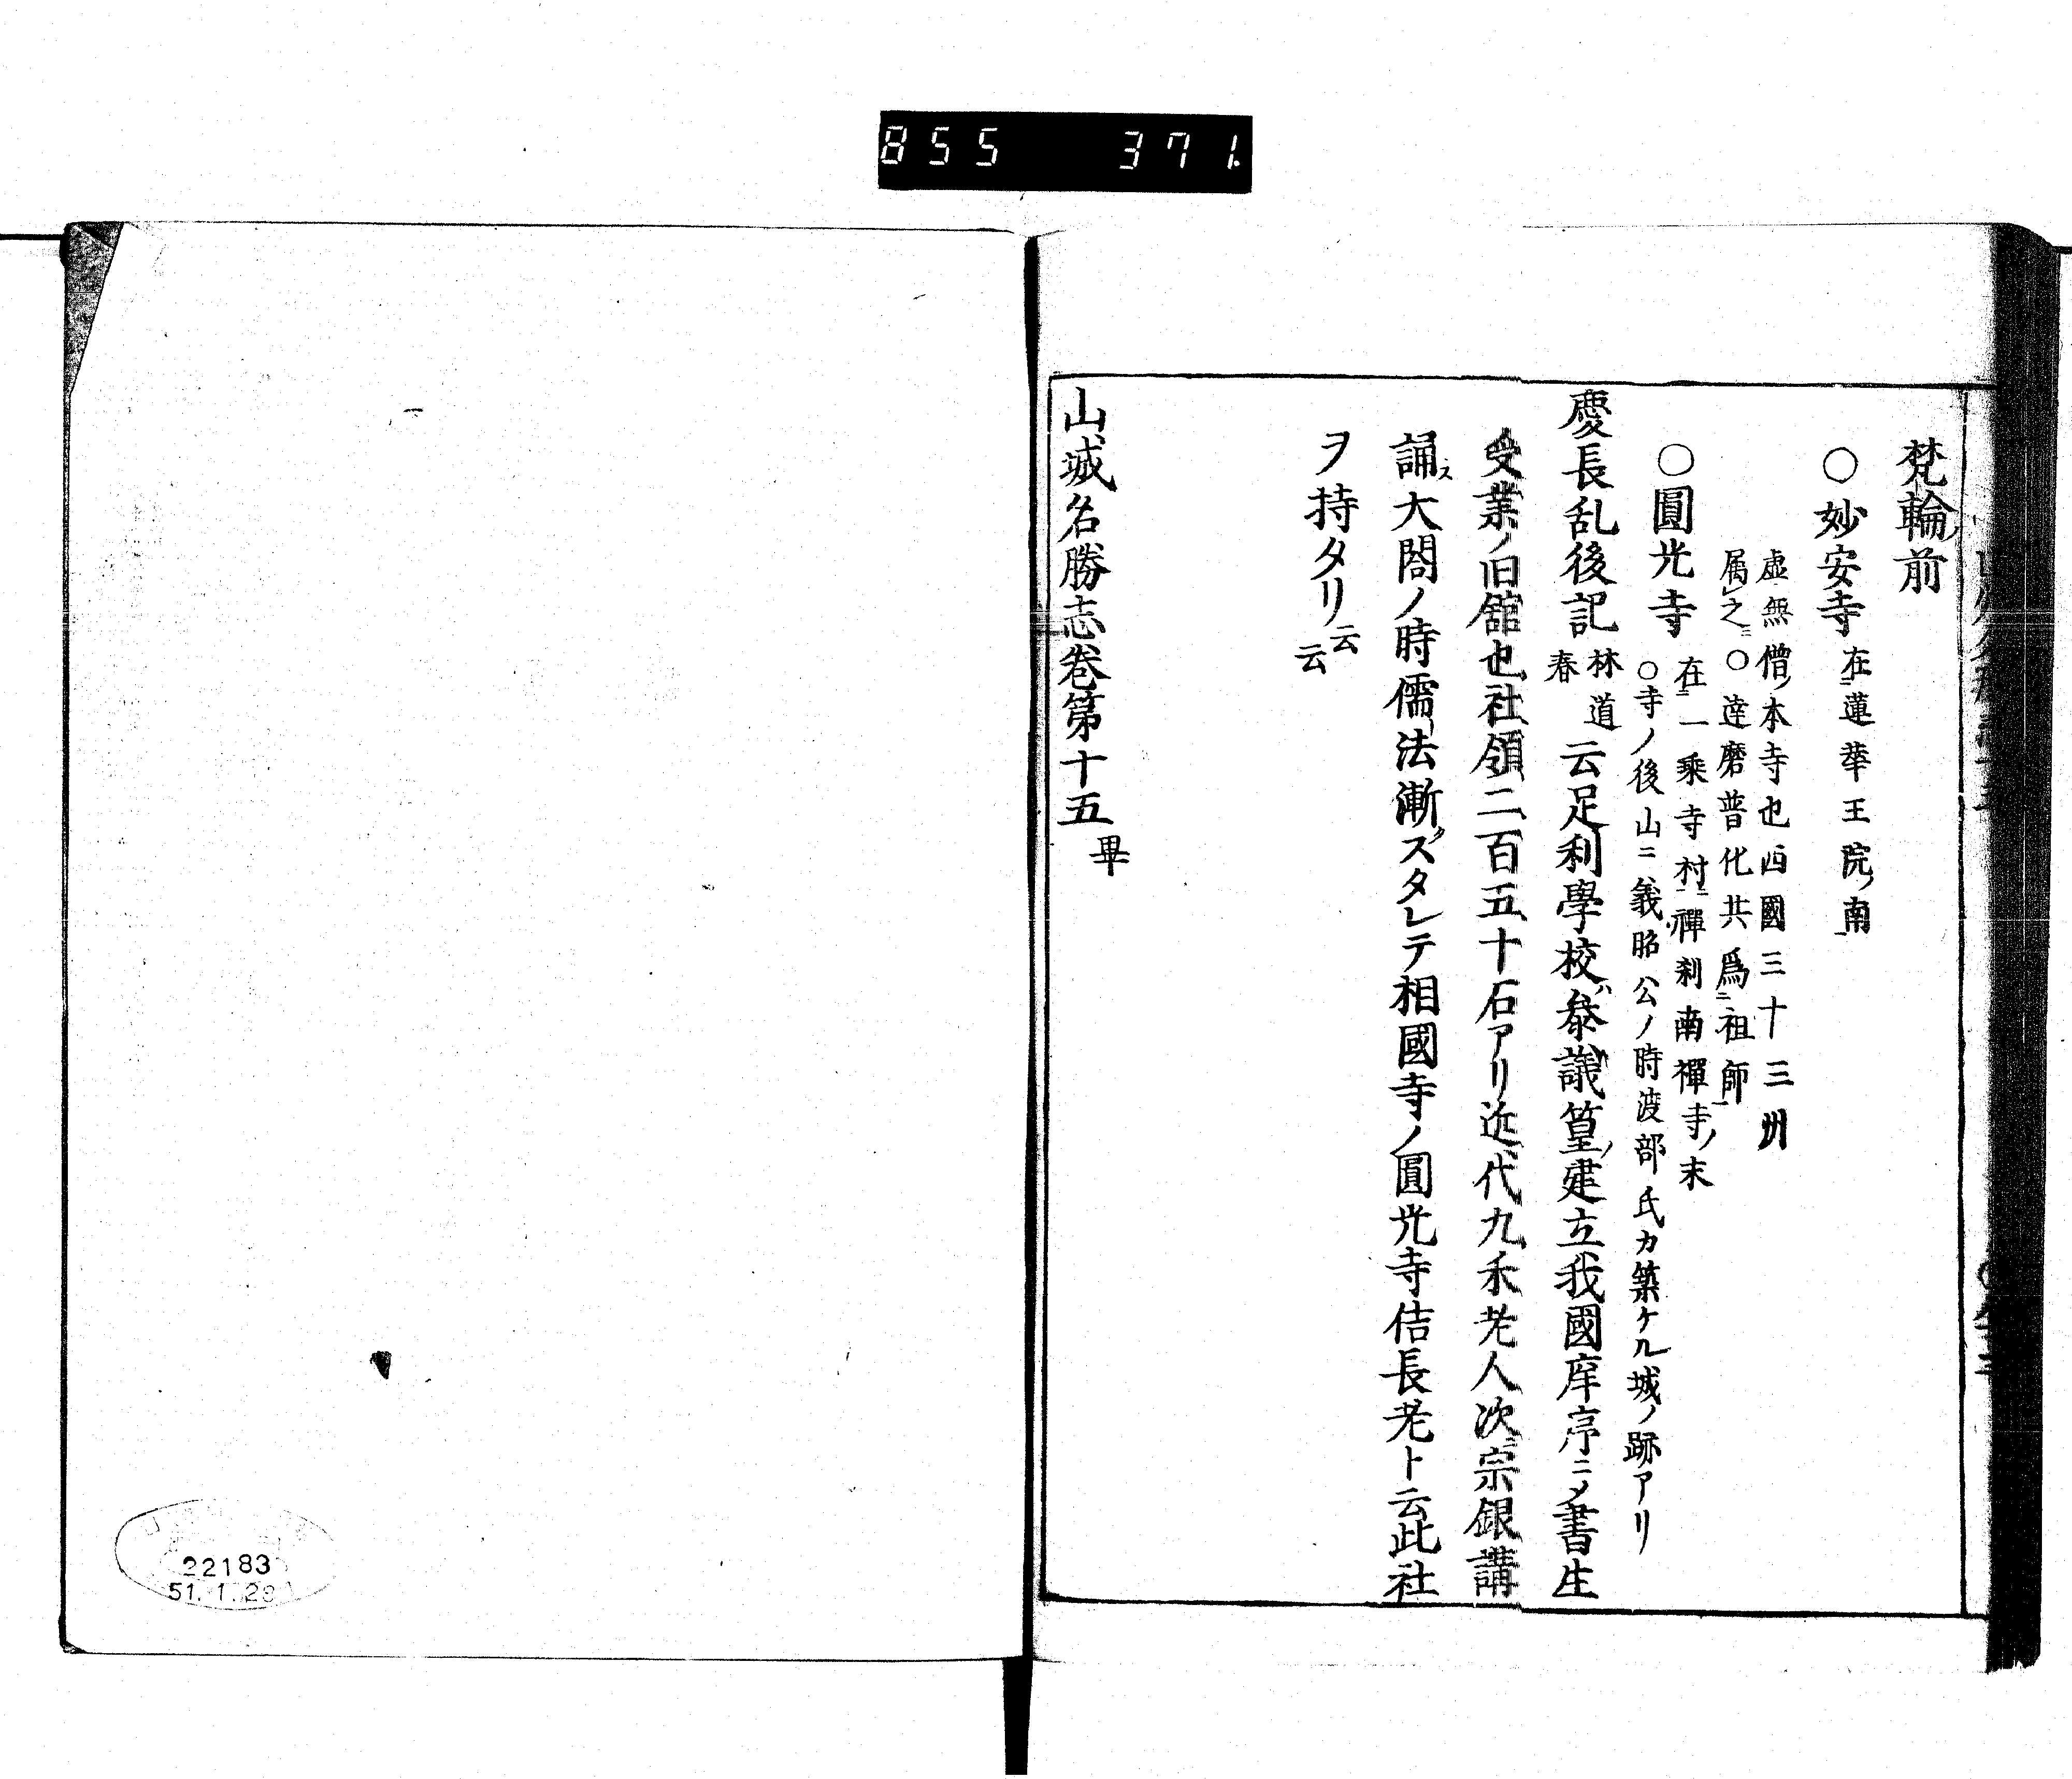 855 371.
梵輪前
○妙安寺 在二蓮華王院ノ南一
虚無僧ノ本寺也西國三十三州
属レ之ニ○達磨普化共爲二祖師一
○圓光寺 在二一乘寺村一ニ禪刹南禪寺ノ末
○寺ノ後山ニ義昭公ノ時渡部氏カ築ケル城ノ跡アリ
慶長乱後記 林道春 云足利學校ハ參議篁ノ建立我國庠序ニメ書生
受業ノ旧舘也社領二百五十石アリ近代九禾老人次ニ宗銀講
誦ス大閤ノ時儒法漸クスタレテ相國寺ノ圓光寺佶長老ト云此社
ヲ持タリ云云
山城名勝志巻第十五 畢
22183
51.1.28